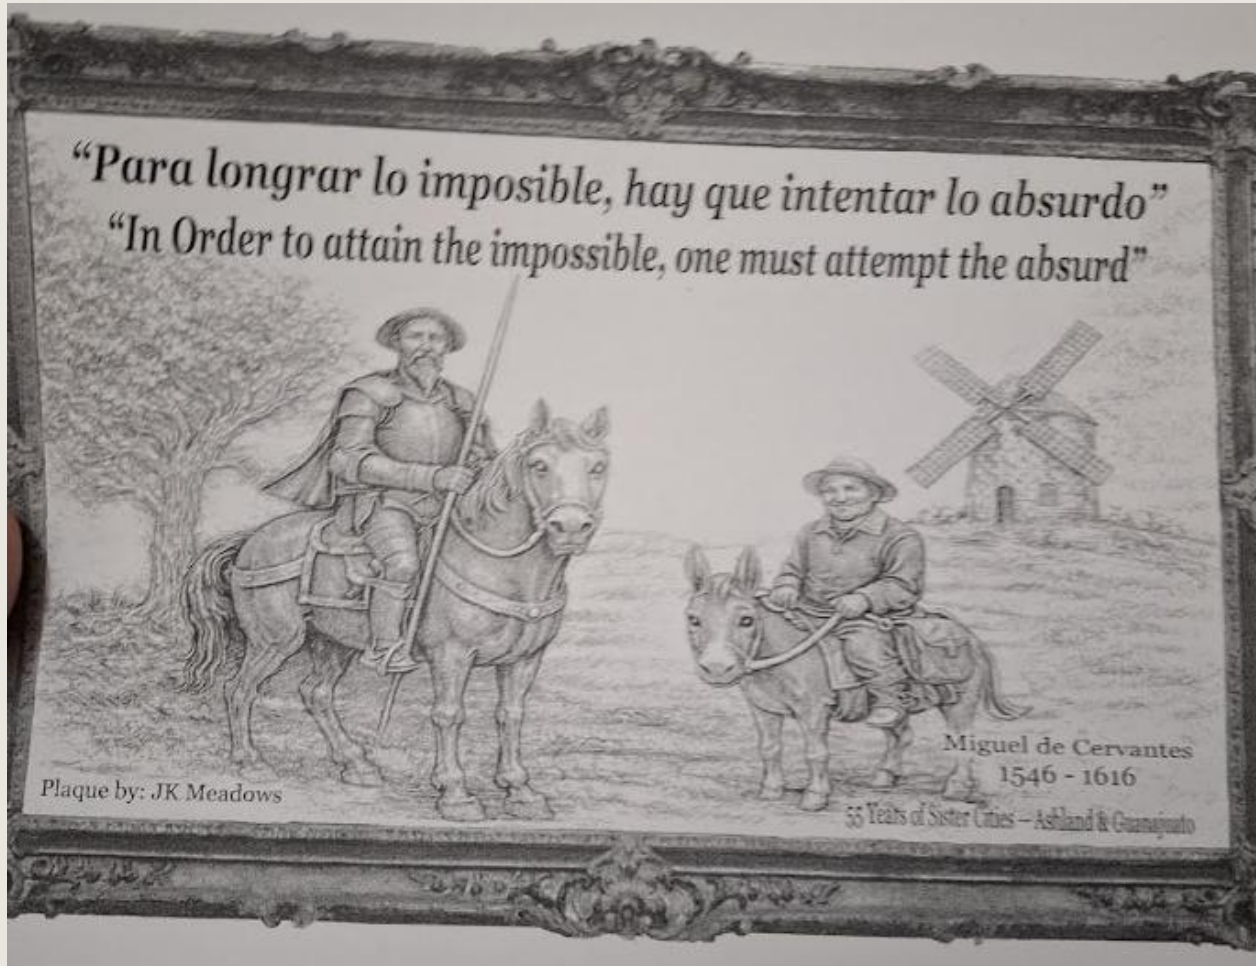 “Para longrar lo imposible, hay que intentar lo absurdo”
“In Order to attain the impossible, one must attempt the absurd”
Miguel de Cervantes
1546 - 1616
Plaque by: JK Meadows
55 Years of Sister Cities – Ashland & Guanajuato